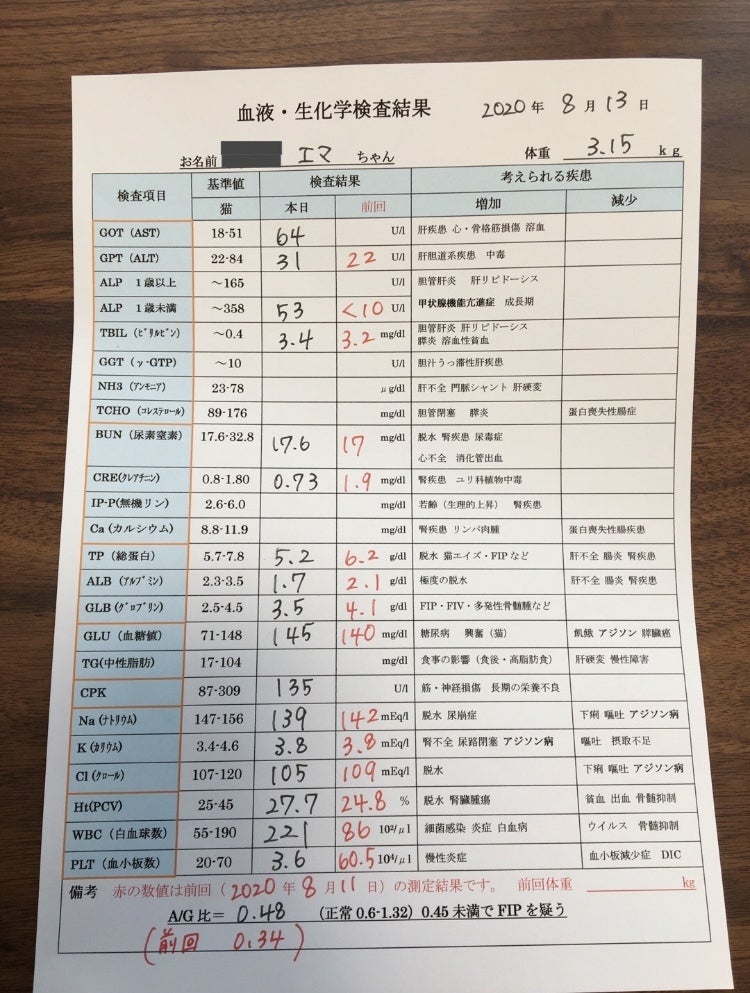 血液・生化学検査結果 2020年 8月13日
お名前 エマ ちゃん 体重 3.15 kg
検査項目 基準値 検査結果 考えられる疾患
猫 本日 前回 増加 減少
GOT (AST) 18-51 64 U/l 肝疾患 心・骨格筋損傷 溶血
GPT (ALT) 22-84 31 22 U/l 肝胆道系疾患 中毒
ALP 1歳以上 ～165 U/l 胆管肝炎 肝リピドーシス
ALP 1歳未満 ～358 53 <10 U/l 甲状腺機能亢進症 成長期
TBIL (ビリルビン) ～0.4 3.4 3.2 mg/dl 胆管肝炎 肝リピドーシス
膵炎 溶血性貧血
GGT (γ-GTP) ～10 U/l 胆汁うっ滞性肝疾患
NH3 (アンモニア) 23-78 μg/dl 肝不全 門脈シャント 肝硬変
TCHO (コレステロール) 89-176 mg/dl 胆管閉塞 膵炎 蛋白喪失性腸症
BUN (尿素窒素) 17.6-32.8 17.6 17 mg/dl 脱水 腎疾患 尿毒症
心不全 消化管出血
CRE(クレアチニン) 0.8-1.80 0.73 1.9 mg/dl 腎疾患 ユリ科植物中毒
IP-P(無機リン) 2.6-6.0 mg/dl 若齢（生理的上昇） 腎疾患
Ca (カルシウム) 8.8-11.9 mg/dl 腎疾患 リンパ肉腫 蛋白喪失性腸疾患
TP (総蛋白) 5.7-7.8 5.2 6.2 g/dl 脱水 猫エイズ・FIPなど 肝不全 腸炎 腎疾患
ALB (アルブミン) 2.3-3.5 1.7 2.1 g/dl 極度の脱水 肝不全 腸炎 腎疾患
GLB (グロブリン) 2.5-4.5 3.5 4.1 g/dl FIP・FIV・多発性骨髄腫など
GLU (血糖値) 71-148 145 140 mg/dl 糖尿病 興奮（猫） 飢餓 アジソン 膵臓癌
TG(中性脂肪) 17-104 mg/dl 食事の影響（食後・高脂肪食） 肝硬変 慢性障害
CPK 87-309 135 U/l 筋・神経損傷 長期の栄養不良
Na (ナトリウム) 147-156 139 142 mEq/l 脱水 尿崩症 下痢 嘔吐 アジソン病
K (カリウム) 3.4-4.6 3.8 3.8 mEq/l 腎不全 尿路閉塞 アジソン病 嘔吐 摂取不足
Cl (クロール) 107-120 105 109 mEq/l 脱水 下痢 嘔吐 アジソン病
Ht(PCV) 25-45 27.7 24.8 % 脱水 腎臓腫瘍 貧血 出血 骨髄抑制
WBC (白血球数) 55-190 221 86 10²/μl 細菌感染 炎症 白血病 ウイルス 骨髄抑制
PLT (血小板数) 20-70 3.6 60.5 10⁴/μl 慢性炎症 血小板減少症 DIC
備考 赤の数値は前回（2020年 8月11日）の測定結果です。 前回体重 kg
A/G 比＝ 0.48 (正常 0.6-1.32) 0.45 未満で FIP を疑う
(前回 0.34)